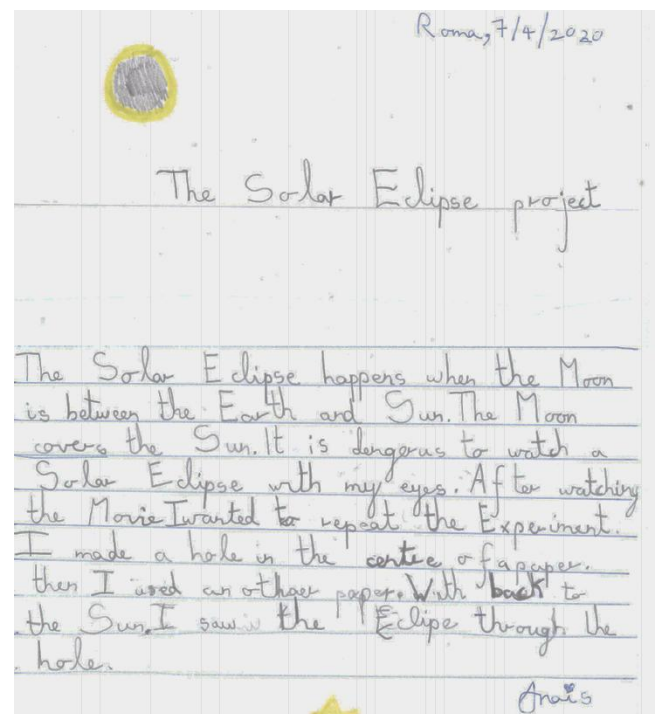 Roma, 7/4/2020
The Solar Eclipse project
The Solar Eclipse happens when the Moon
is between the Earth and Sun. The Moon
covers the Sun. It is dengerus to watch a
Solar Eclipse with my eyes. After watching
the Movie I wanted to repeat the Experiment.
I made a hole in the centre of a paper.
then I used an othaer paper. With back to
the Sun. I saw the Eclipe through the
hole.
Anais